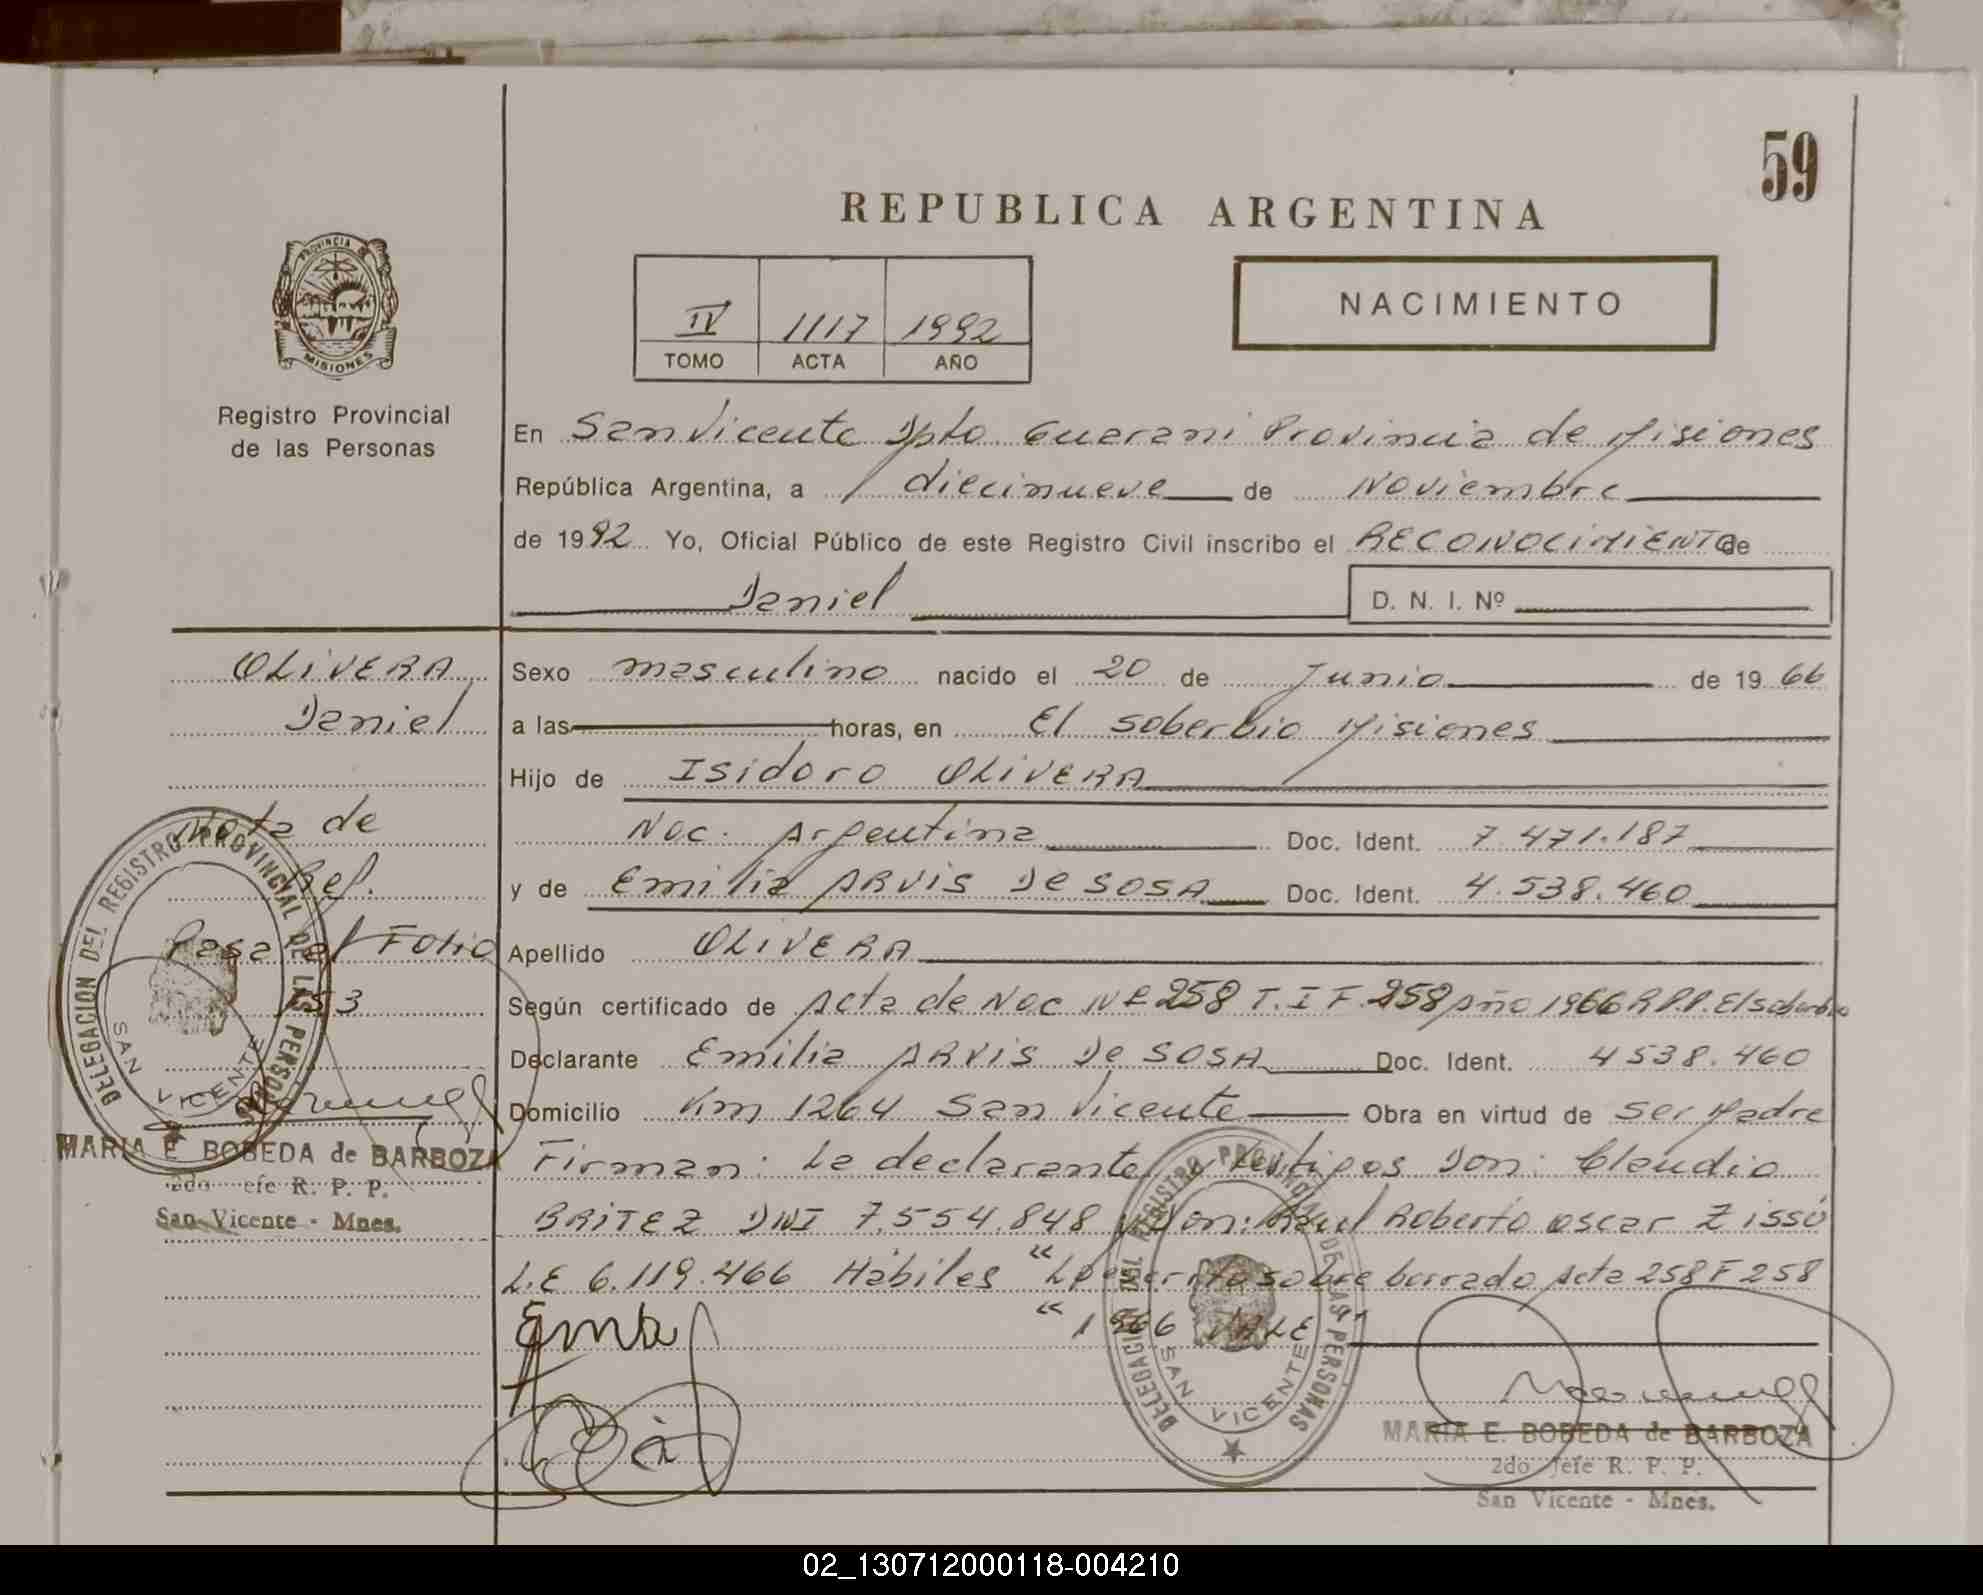 59
REPUBLICA ARGENTINA
PROVINCIA DE
MISIONES
Registro Provincial
de las Personas
IV 1117 1992
TOMO ACTA AÑO
NACIMIENTO
En San Vicente Dpto Guarani Provincia de Misiones
República Argentina, a diecinueve de Noviembre
de 1992 Yo, Oficial Público de este Registro Civil inscribo el RECONOCIMIENTO de
Daniel D. N. I. Nº
OLIVERA
Daniel
Nota de
Ref.
Pasa al Folio
153
DELEGACION DEL REGISTRO PROVINCIAL DE LAS PERSONAS
SAN VICENTE
MARIA E. BOBEDA de BARBOZA
2do Jefe R. P. P.
San Vicente - Mnes.
Sexo masculino nacido el 20 de Junio de 1966
a las horas, en El Soberbio Misiones
Hijo de Isidoro OLIVERA
Nac. Argentina Doc. Ident. 7.471.187
y de Emilia ARVIS De SOSA Doc. Ident. 4.538.460
Apellido OLIVERA
Según certificado de Acta de Nac Nº 258 T. I F. 258 Año 1966 R.P.P. El soberbio
Declarante Emilia ARVIS De SOSA Doc. Ident. 4538.460
Domicilio Km 1264 San Vicente Obra en virtud de Ser Madre
Firman: La declarante y testigos Don: Claudio
BRITEZ DNI 7.554.848 y Don: Raul Roberto oscar Zissó
L.E 6.119.466 Hábiles "Lo escrito sobre borrado Acta 258 F 258
"1966 VALE"
DELEGACION DEL REGISTRO PROVINCIAL DE LAS PERSONAS
SAN VICENTE
MARIA E. BOBEDA de BARBOZA
2do Jefe R. P. P.
San Vicente - Mnes.
02_130712000118-004210